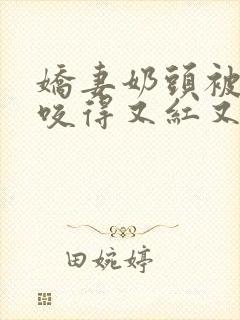 嬌妻奶頭被
咬得又紅又
田婉婷